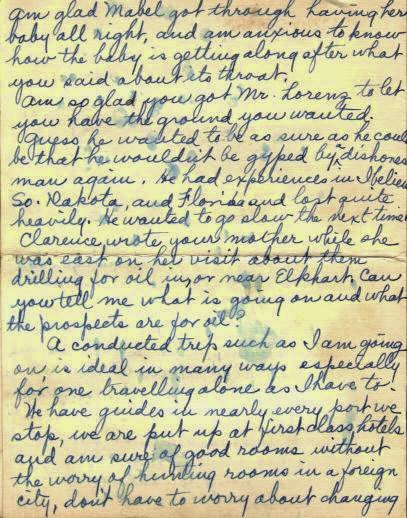 am glad Mabel got through having her
baby all right, and am anxious to know
how the baby is getting along after what
you said about its throat.
Am so glad you got Mr. Lorenz to let
you have the ground you wanted.
Guess he wanted to be as sure as he could
be that he wouldn't be gyped by a dishones
man again. He had experiences in I believ
So. Dakota, and Florida and lost quite
heavily. He wanted to go slow the next time
Clarence wrote your mother while she
was east on her visit about them
drilling for oil in, or near Elkhart. Can
you tell me what is going on and what
the prospects are for oil?
A conducted trip such as I am going
on is ideal in many ways especially
for one travelling alone as I have to.
We have guides in nearly every port we
stop, we are put up at first class hotels
and am sure of good rooms without
the worry of hunting rooms in a foreign
city, don't have to worry about changing